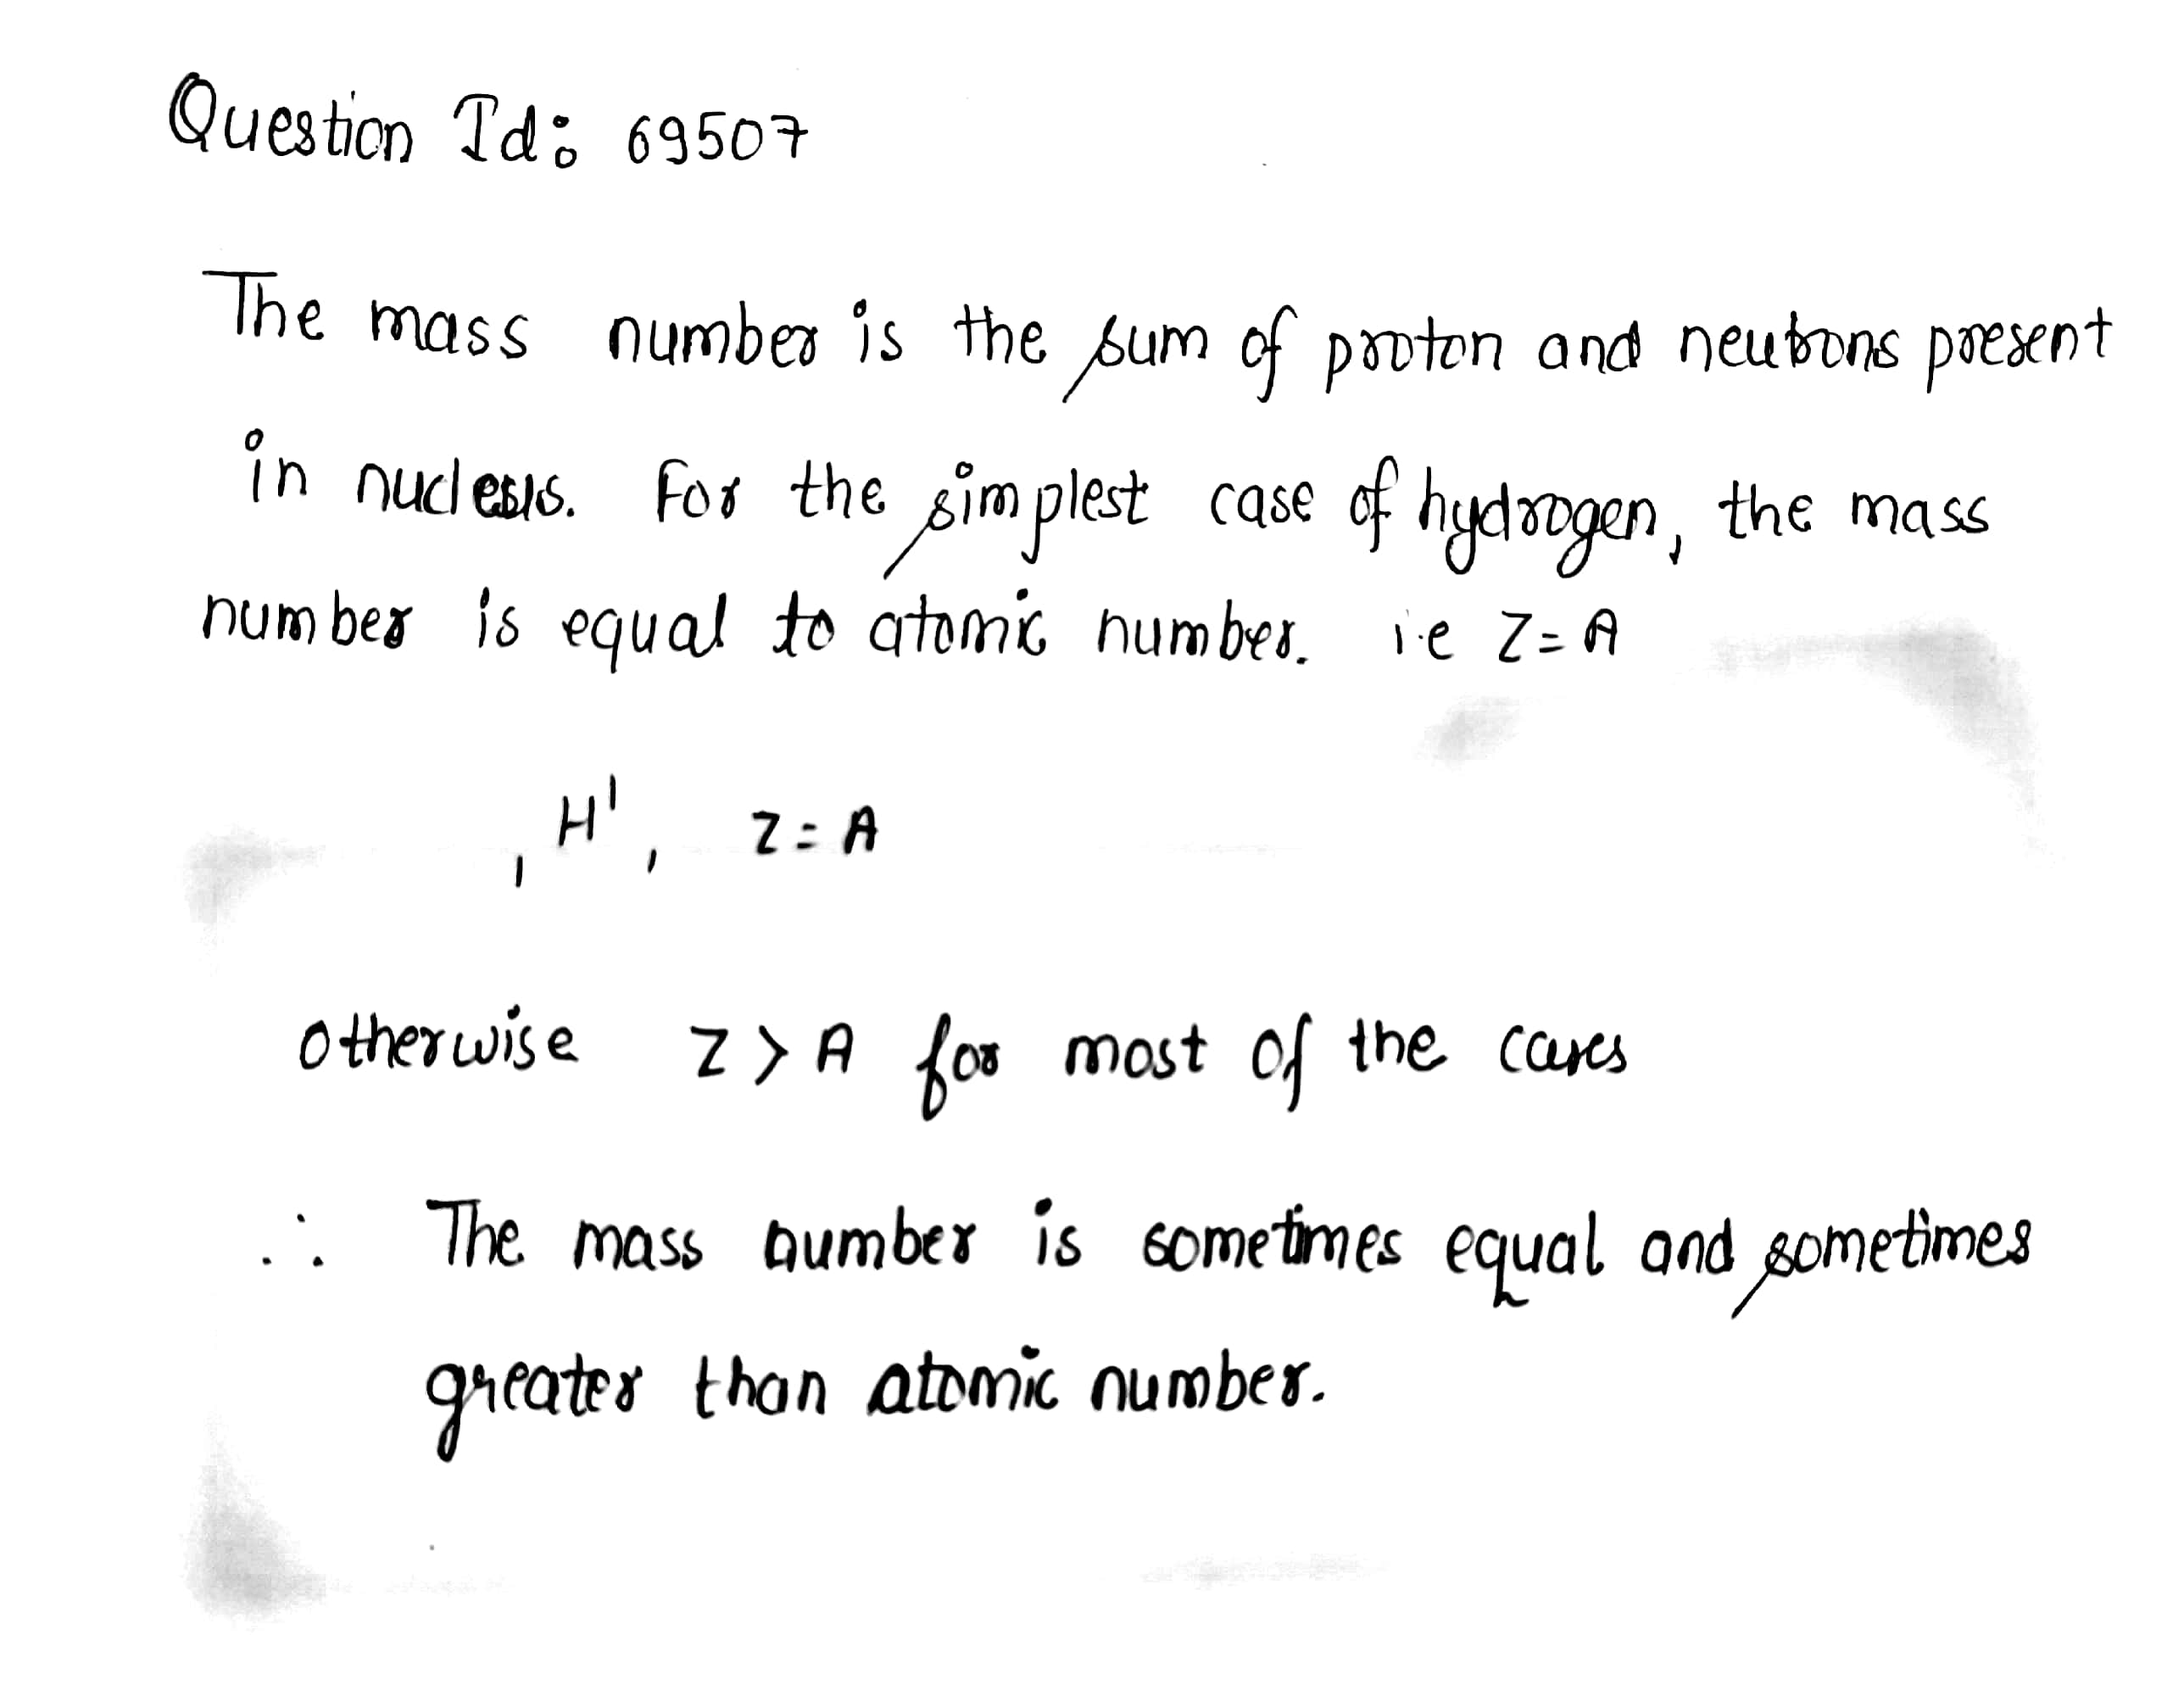 Question Id: 69507
The mass number is the sum of proton and neutrons present
in nucleus. For the simplest case of hydrogen, the mass
number is equal to atomic number. i.e Z = A
₁H¹, Z = A
otherwise Z > A for most of the cases
∴ The mass number is sometimes equal and sometimes
greater than atomic number.